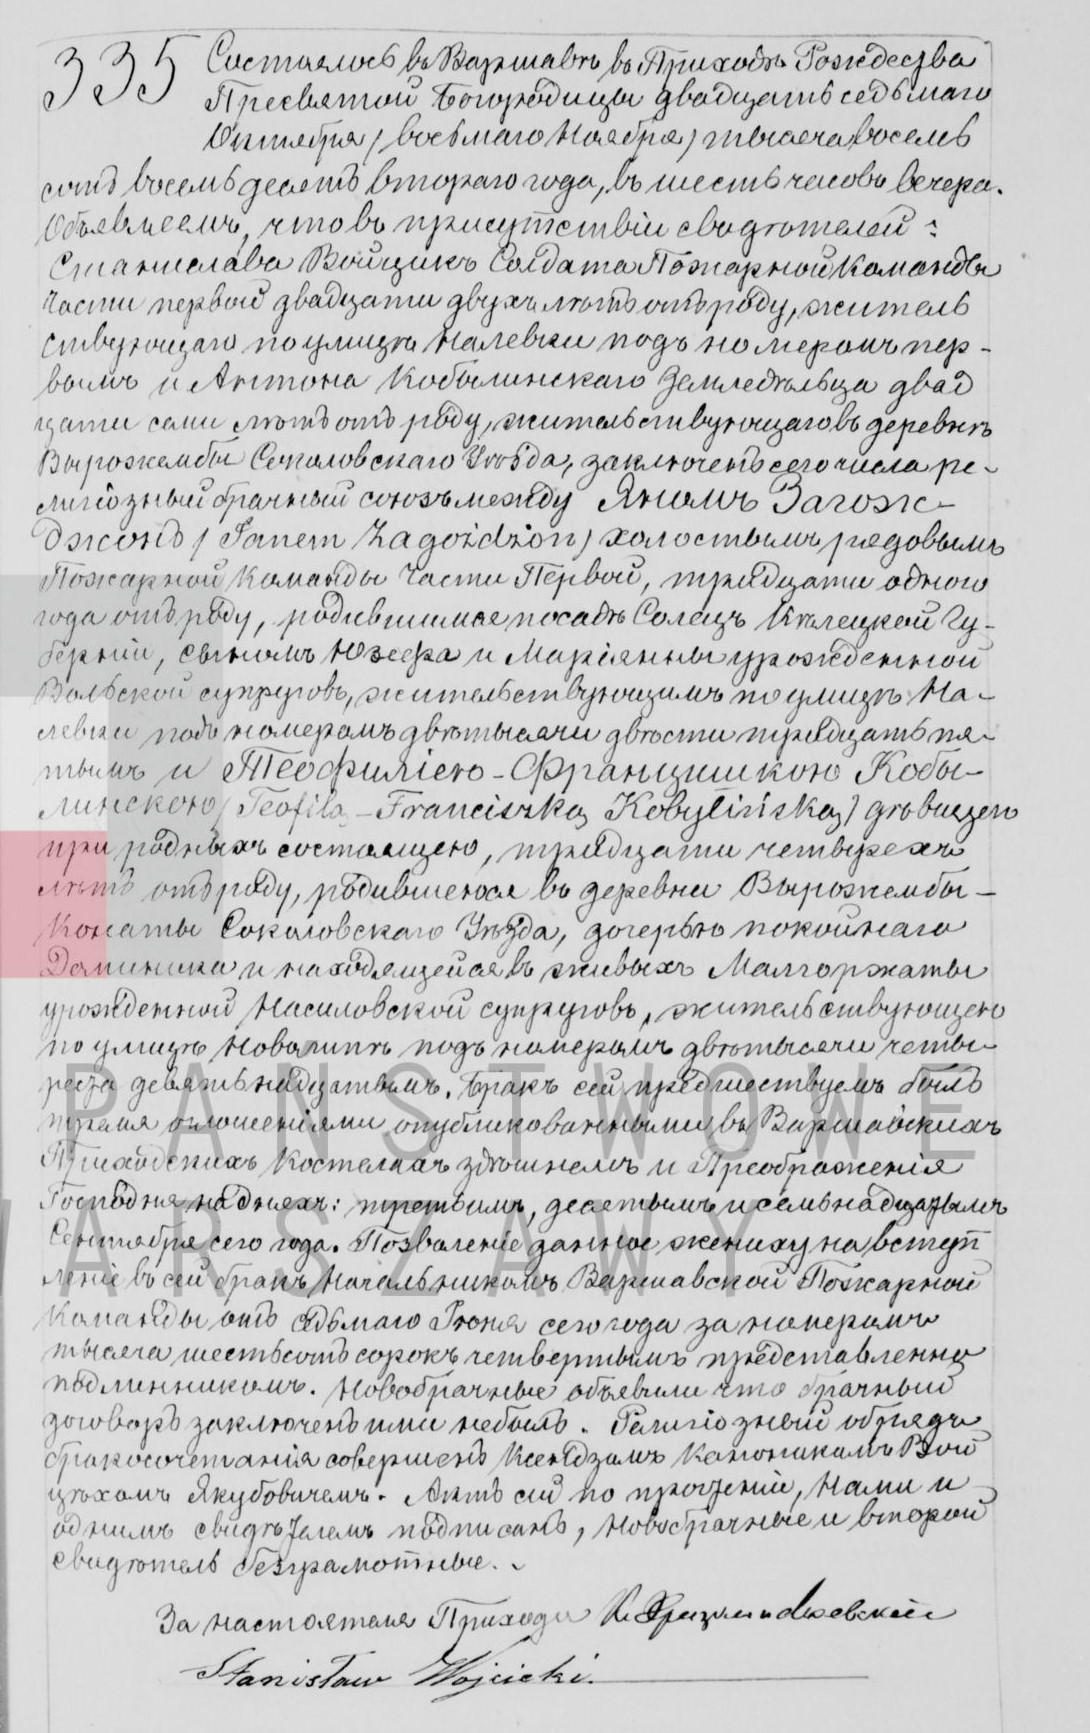 335
Состоялось въ Варшавѣ въ Приходѣ Рождества
Пресвятой Богородицы двадцать седьмаго
Октября / восьмаго Ноября / тысяча восемь
сотъ восемьдесятъ втораго года, въ шесть часовъ вечера.
Объявляемъ, что въ присутствіи свидѣтелей:
Станислава Войцикъ Солдата Пожарной Команды
Части первой двадцати двухъ лѣтъ отъ роду, житель
ствующаго по улицѣ Налевки подъ номеромъ пер-
вымъ и Антона Кобылинскаго Земледѣльца двад
цати семи лѣтъ отъ роду, жительствующаго въ деревнѣ
Вырожембы Соколовскаго Уѣзда, заключенъ сего числа ре-
лигіозный брачный союзъ между Яномъ Загож-
джонъ / Janem Zagożdżon / холостымъ рядовымъ
Пожарной Команды Части Первой, тридцати одного
года отъ роду, родившимся посадѣ Солецъ Кѣлецкой Гу-
берніи, сыномъ Юзефа и Маріянны урожденной
Вольской супруговъ, жительствующимъ по улицѣ На-
левки подъ номеромъ двѣ тысячи двѣсти тридцать пя-
тымъ и Теофиліею-Францишкою Кобы-
линскою / Teofilą-Franciszką Kobylińską / дѣвицею
при родныхъ состоящею, тридцати четырехъ
лѣтъ отъ роду, родившеюся въ деревни Вырожембы-
Конаты Соколовскаго Уѣзда, дочерью покойнаго
Доминика и находящейся въ живыхъ Малгоржаты
урожденной Насиловской супруговъ, жительствующею
по улицѣ Новолипѣ подъ номеромъ двѣ тысячи четы-
реста девятьнадцатымъ. Бракъ сей предшествуемъ былъ
тремя оглошеніями опубликованными въ Варшавскихъ
Приходскихъ Костелахъ здѣшнемъ и Преображенія
Господня на дняхъ: третьимъ, десятымъ и семьнадцатымъ
Сентября сего года. Позволеніе данное жениху на вступ
леніе въ сей бракъ Начальникомъ Варшавской Пожарной
Команды отъ седьмаго Іюня сего года за номеромъ
тысяча шестьсотъ сорокъ четвертымъ представленно
подлинникомъ. Новобрачные объявили что брачный
договоръ заключенъ ими небылъ. Религіозный обрядъ
бракосочетанія совершенъ Ксендзомъ Каноникомъ Вой
цѣхомъ Якубовичемъ. Актъ сей по прочтеніи, Нами и
однимъ свидѣтелемъ подписанъ, Новобрачные и второй
свидѣтель безграмотные.
За настоятеля Прихода К.
Stanisław Wojcicki.
PAŃSTWOWE
WARSZAWY